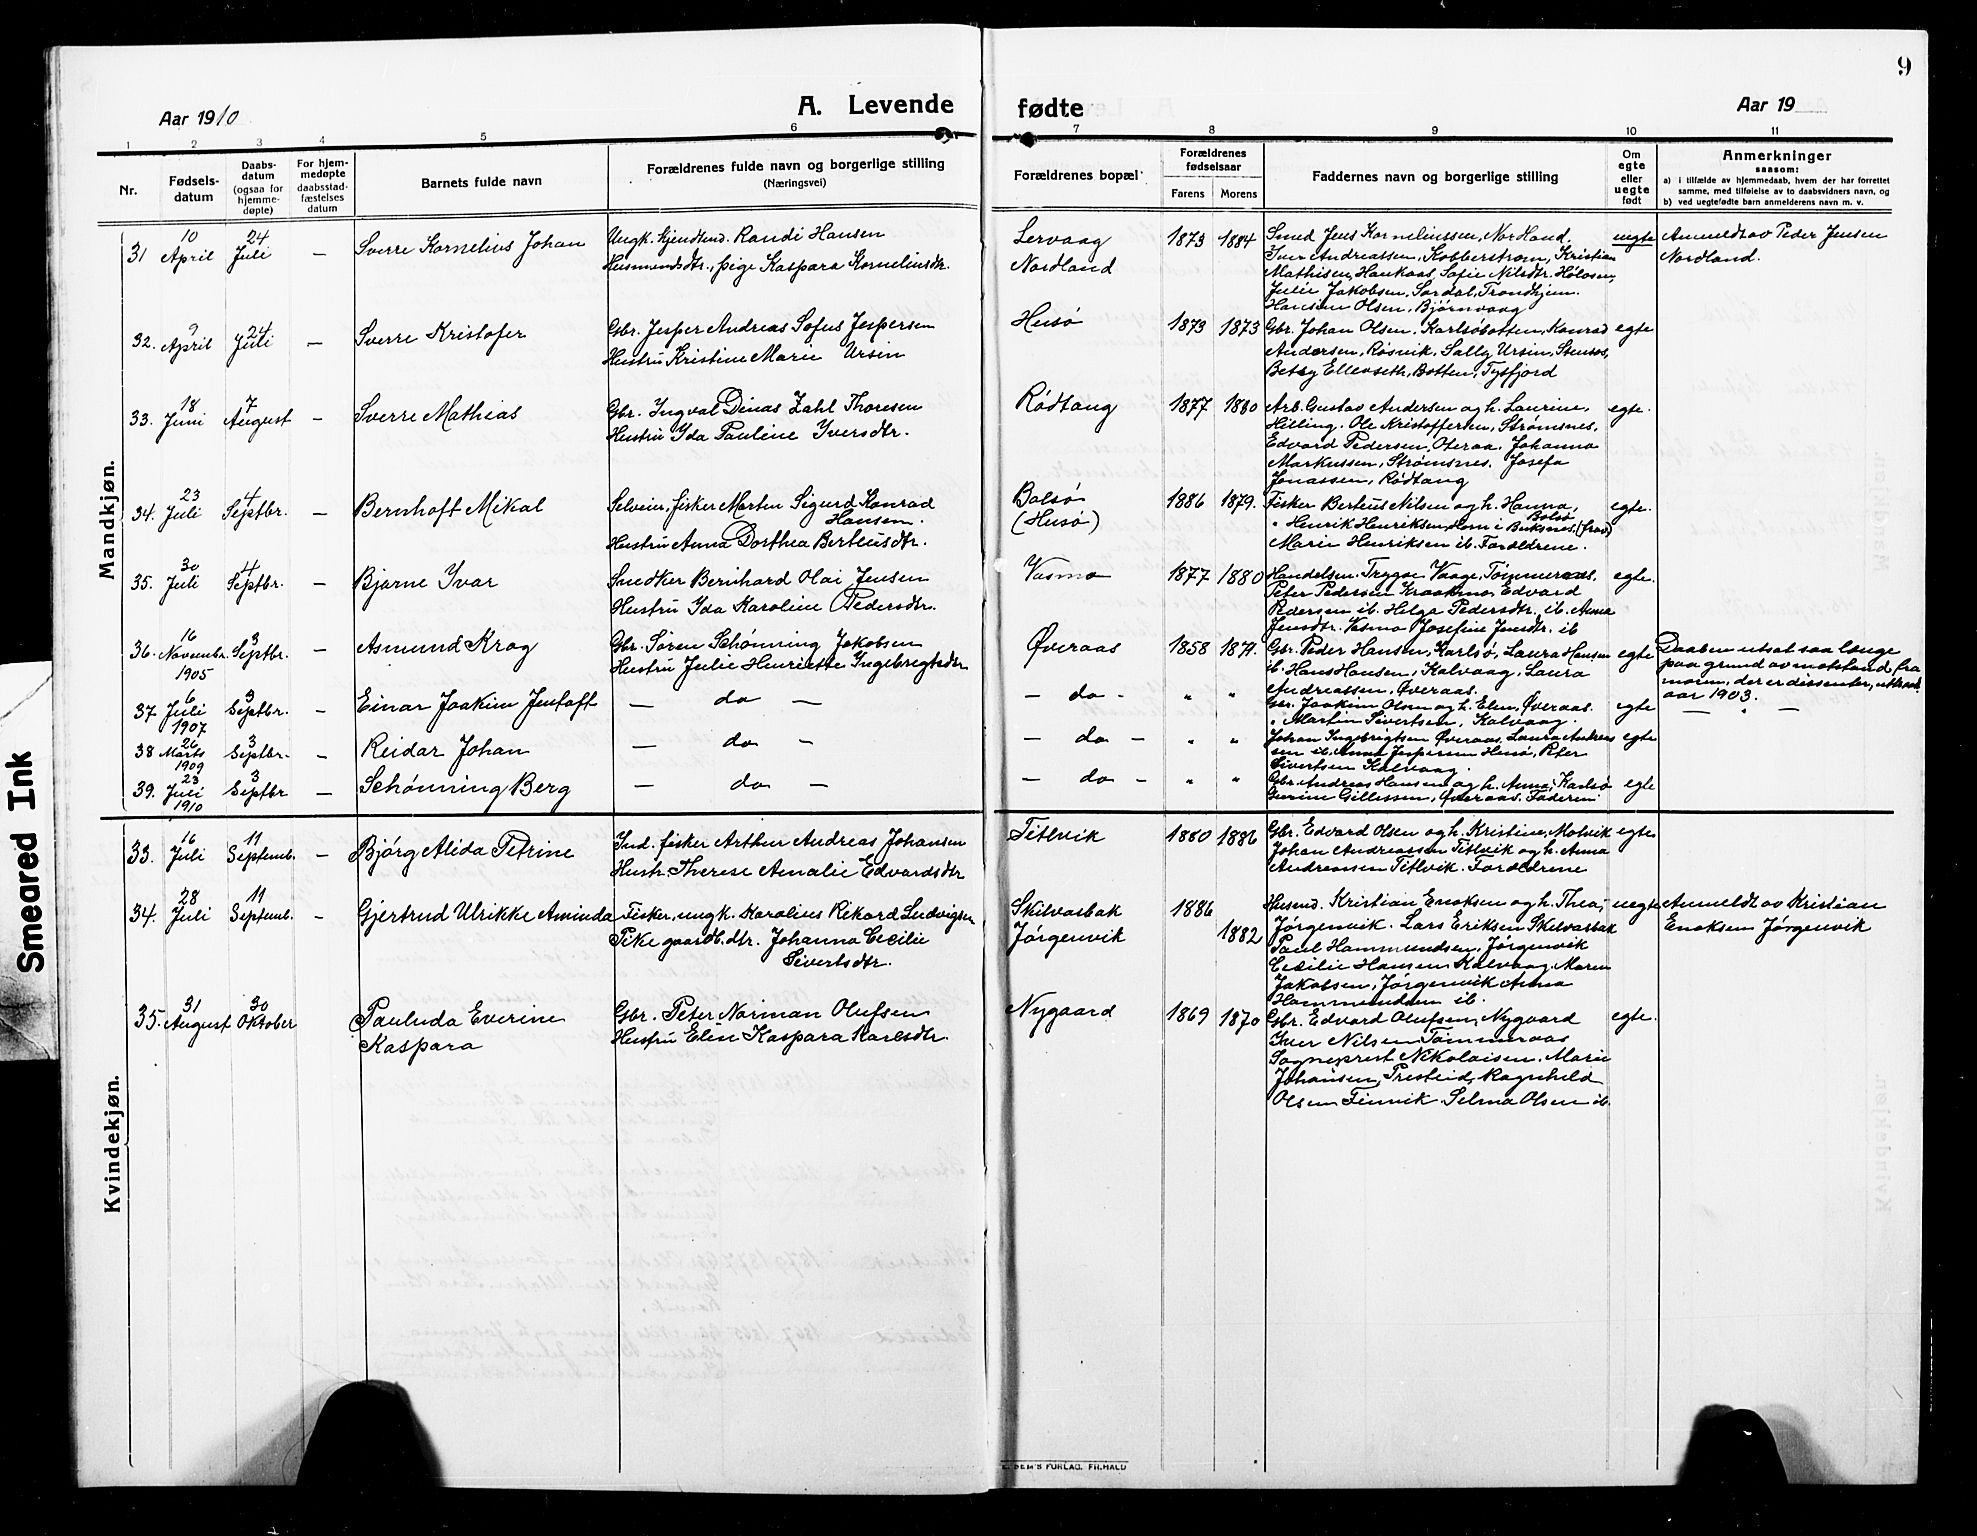 9
Aar 1910
A. Levende fødte
Aar 19
1 2 3 4 5 6 7 8 9 10 11
Nr.
Fødsels-
datum
Daabs-
datum
(ogsaa for
hjemme-
døpte)
For hjem-
medøpte
daabsstad-
fæstelses
datum
Barnets fulde navn
Forældrenes fulde navn og borgerlige stilling
(Næringsvei)
Forældrenes bopæl
Forældrenes
fødselsaar
Farens Morens
Faddernes navn og borgerlige stilling
Om
egte
eller
uegte
født
Anmerkninger
saasom:
a) i tilfælde av hjemmedaab, hvem der har forrettet
samme, med tilføielse av to daabsvidners navn, og
b) ved uegtefødte barn anmelderens navn m. v.
Mandkjøn.
31 10 April 24 Juli — Sverre Kornelius Johan
Ungk. Randi Hansen
Husmandsdtr., pige Kaspara Korneliusdtr.
Lervaag
Nordland
1873 1884
Smed Jens Korneliussen, Nordland,
Iver Andreassen, Kobberstrøm, Kristian
Mathisen, Haukaas, Sofie Nilsdtr.
Julie Jakobsen, Sørdal, Trondhjem.
Hansine Olsen, Bjørnvaag
uegte
Anmeldt av Peder Jensen
Nordland.
32. 9 April 24 Juli — Sverre Kristofer
Gbr. Jesper Andreas Sofus Jespersen
Hustru Kristine Marie Ursin
Husø
1873 1873
Gbr. Johan Olsen, Karlsøbotten, Konrad
Andersen, Røsvik, Sally Ursin,
Betsy Ellevseth, Botten, Tysfjord
egte
33. 18 Juni 7 August — Sverre Mathias
Gbr. Ingval Dinas Zahl Thoresen
Hustru Ida Pauline Iversdtr.
Rødtang
1877 1880
Arb. Gustav Andersen og h. Laurine,
Helling. Ole Kristoffersen, Strømsnes,
Edvard Pedersen, Johanna
Markussen, Strømsnes. Josefa
Jonassen, Rødtang
egte.
34. 23 Juli 4 Septbr. — Bernhoft Mikal
Selveier, fisker Morten Sigurd Konrad
Hansen.
Hustru Anna Dorthea Berteusdtr.
Bolsø
(Husø)
1886 1879.
Fisker Berteus Nilsen og h. Hanna,
Bolsø
" Henrik Henriksen, Hom i Buksnes, (frav)
Marie Henriksen ib. Forældrene.
egte.
35. 30 Juli 4 Septbr. — Bjarne Ivar
Snedker Bernhard Olai Jensen
Hustru Ida Karoline Pedersdtr.
Vasmo
1877 1880
Handelsm. Trygve Vaage, Tømmeraas,
Peter Pedersen Kraakmo, Edvard
Pedersen ib. Helga Pedersdtr. ib. Anna
Jensdtr. Vasmo Josefine Jensdtr. ib
egte.
36. 16 Novembr. 1905 3 Septbr. — Asmund Krog
Gbr. Søren Schønning Jakobsen
Hustru Julie Henriette Ingebrigtsdtr
Øveraas
1858 1871.
Gbr. Peder Hansen, Karlsø, Laura Hansen
ib. Hans Hansen, Kalvaag, Laura
Andreassen, Øveraas.
egte
Daaben utsat saa længe
paa grund av motstand fra
moren, der er dissenter,
aar 1903.
37 6 Juli 1907 3 Septbr. — Einar Joakim Jentoft
— do —
— do -
" "
Gbr. Joakim Olsen og h. Elen, Øveraas.
" Martin Sivertsen, Kalvaag.
egte
— " —
38 26 Marts 1909 3 Septbr. — Reidar Johan
— do —
— do -
" "
Johan Ingebrigtsen Øveraas, Laura Andreas
sen ib. Anna Jespersen Husø, Peter
Sivertsen Kalvaag.
egte
39. 23 Juli 1910 3 Septbr — Schønning Berg
— do —
— do —
" "
Gbr. Andreas Hansen og h. Anna, Karlsø
Gurine Gillissen, Øveraas. Faderen
egte
Kvindekjøn.
33. 16 Juli 11 Septemb. — Bjørg Alida Petrine
Ind. fisker Arthur Andreas Johansen
Hustr. Therese Amalie Edvardsdtr
Titlvik
1880 1886
Gbr. Edvard Olsen og h. Kristine, Molvik
Johan Andreassen Titlvik og h. Anna
Andreassen Titlvik. Forældrene
egte
34. 28 Juli 11 Septemb. - Gjertrud Ulrikke Aminda
Fisker, ungk. Karolius Rikard Ludvigsen
Pike gaardb.dtr. Johanna Cecilie
Sivertsdtr.
Skilvasbak
Jørgenvik
1886
1882
Husmd. Kristian Enoksen og h. Thea,
Jørgenvik. Lars Eriksen Skilvasbak
Paul Hammundsen, Jørgenvik
Cecilie Hansen Kalvaag. Maren
Jakobsen, Jørgenvik Anna
Hammundsen ib.
uegte
Anmeldt av Kristian
Enoksen Jørgenvik
35. 31 August 30 Oktober
Pauluda Everine
Kaspara
Gbr. Peter Norman Olufsen
Hustru Elen Kaspara Karlsdtr.
Nygaard
1869 1870
Gbr. Edvard Olufsen, Nygaard
Iver Nilsen Tømmeraas
Sogneprest Nikolaisen. Marie
Johansen, Presteid, Ragnhild
Olsen Finnvik. Selma Olsen ib.
egte.
DEM'S FORLAG. FR.HALD
Smeared Ink